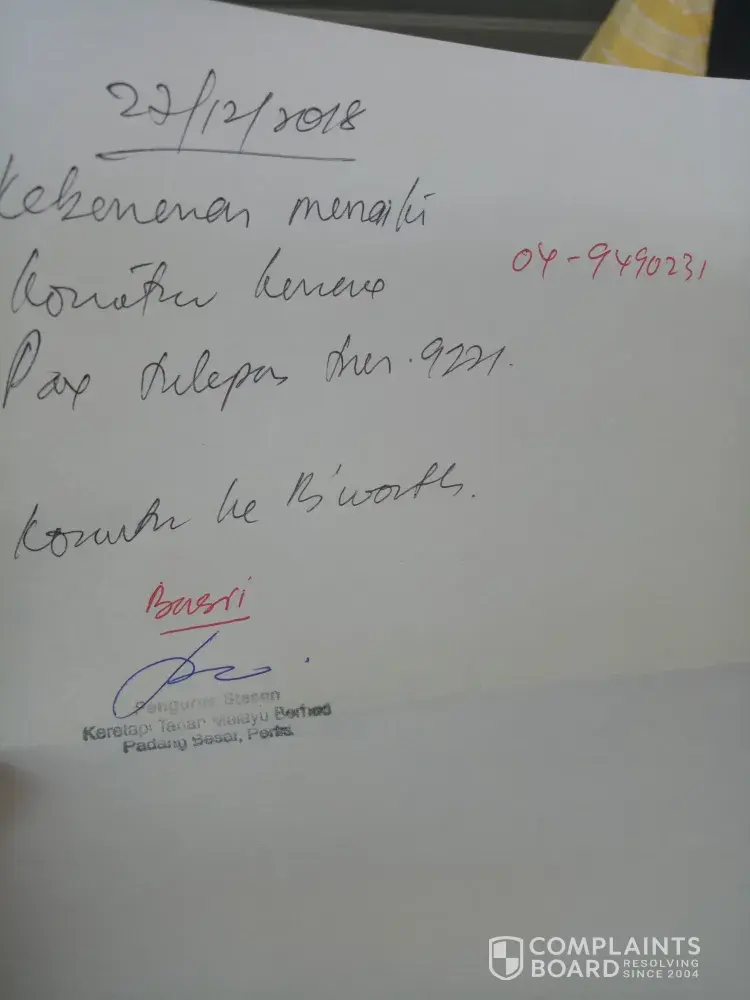 22/12/2018
Kebenenan menaiki
04-9490231
Komuter kerana
Pax terlepas tren. 9221.
Komuter ke B'worth.
Basri
Pengurus Stesen
Keretapi Tanah Melayu Berhad
Padang Besar, Perlis
COMPLAINTS
BOARD RESOLVING
SINCE 2004